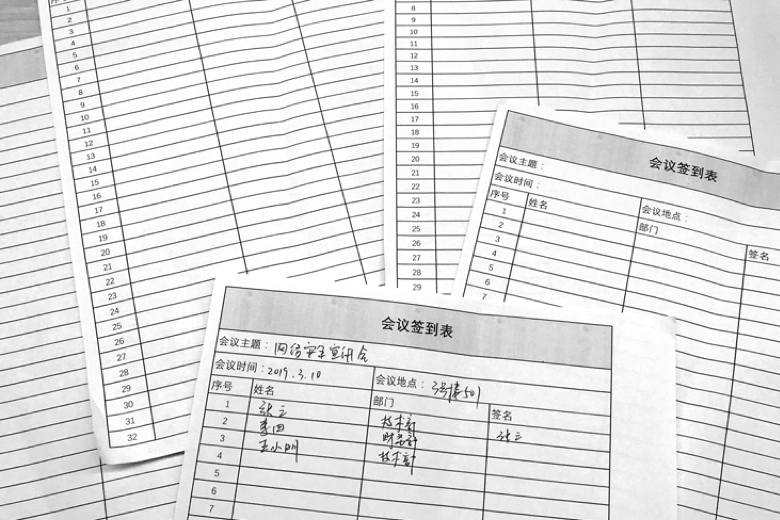 序号
1
2
3
4
5
6
7
8
9
10
11
12
13
14
15
16
17
18
19
20
21
22
23
24
25
26
27
28
29
30
31
32
8
9
10
11
12
13
14
15
16
17
18
19
20
21
22
23
24
25
26
27
28
29
会议签到表
会议主题：
会议时间：
会议地点：
序号 姓名 部门 签名
1
2
3
4
5
6
7
会议签到表
会议主题：网络安全宣讲会
会议时间：2019.3.10 会议地点：3号楼501
序号 姓名 部门 签名
1 张三 技术部 张三
2 李四 财务部
3 王小明 技术部
4
5
6
7